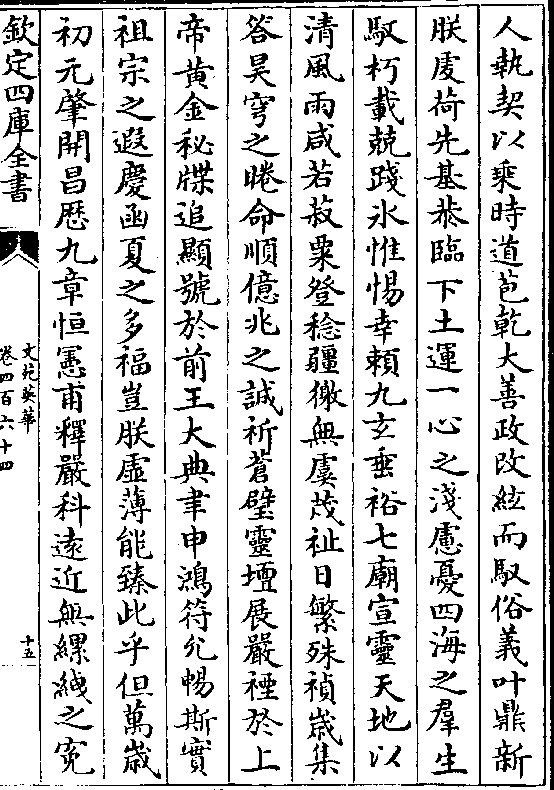 人執契以乘時道苞乾大善政改絃而馭俗義叶鼎新
朕虔荷先基恭臨下土運一心之淺慮憂四海之羣生
馭朽載兢踐冰惟惕幸頼九玄垂裕七廟宣靈天地以
清風雨咸若菽粟登稔疆徼無虞茂祉日繁殊禎歲集
答昊穹之睠命順億兆之誠祈蒼璧靈壇展嚴禋於上
帝黃金秘牒追顯號於前王大典聿申鴻符允暢斯實
祖宗之遐慶函夏之多福豈朕虛薄能臻此乎但萬歲
初元肇開昌歴九章恒憲甫釋嚴科逺近無縲絏之寃
欽定四庫全書
文苑英華
卷四百六十四
十五